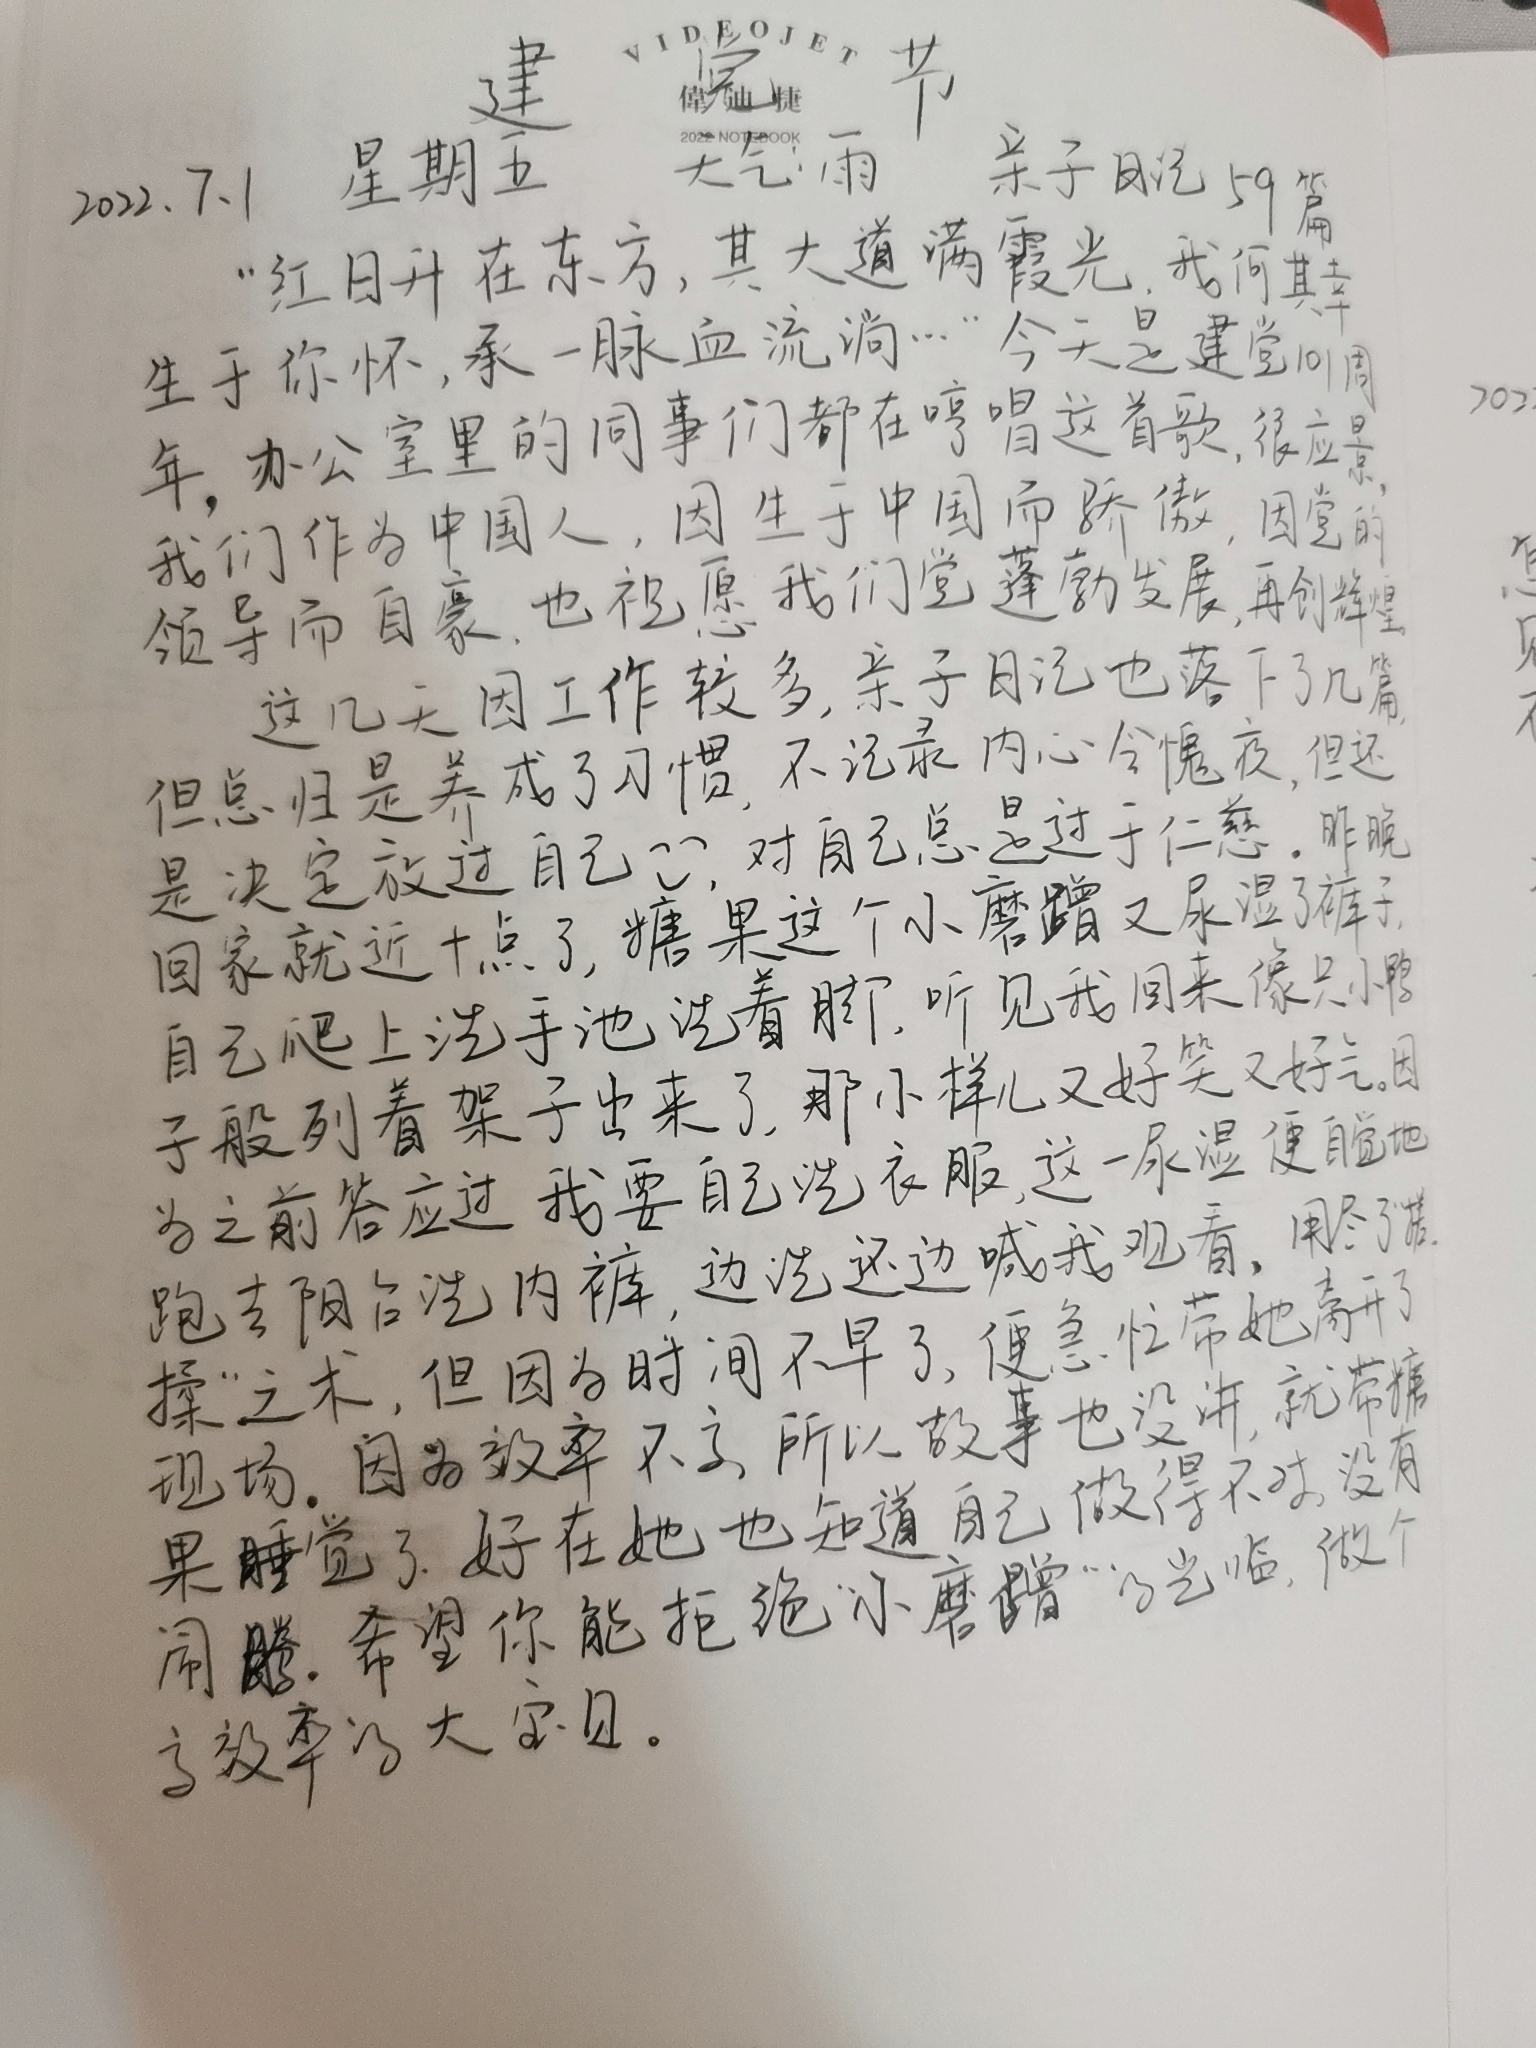 VIDEOJET
建党节
偉迪捷
2022 NOTEBOOK
2022.7.1 星期五 天气:雨 亲子日记59篇
“红日升在东方,其大道满霞光,我何其幸
生于你怀,承一脉血流淌…”今天是建党101周
年,办公室里的同事们都在哼唱这首歌,很应景,
我们作为中国人,因生于中国而骄傲,因党的
领导而自豪,也祝愿我们党蓬勃发展,再创辉煌。
这几天因工作较多,亲子日记也落下了几篇,
但总归是养成了习惯,不记录内心会愧疚,但还
是决定放过自己,对自己总是过于仁慈。昨晚
回家就近十点了,糖果这个小磨蹭又尿湿了裤子,
自己爬上洗手池洗着脚,听见我回来像只小鸭
子般列着架子出来了,那小样儿又好笑又好气。因
为之前答应过我要自己洗衣服,这一尿湿便自觉地
跑去阳台洗内裤,边洗还边喊我观看,用尽了“搓
揉”之术,但因为时间不早了,便急忙带她离开了
现场。因为效率不高,所以故事也没讲,就带糖
果睡觉了,好在她也知道自己做得不对,没有
闹腾。希望你能拒绝“小磨蹭”的光临,做个
高效率的大宝贝。
202
见